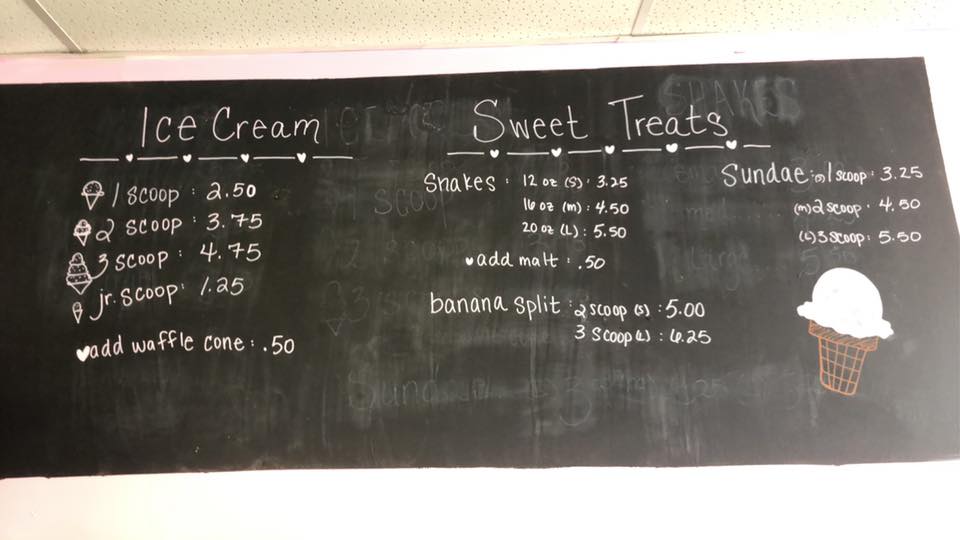 Ice Cream
1 scoop : 2.50
2 scoop : 3.75
3 scoop : 4.75
jr. scoop : 1.25
add waffle cone : .50
Sweet Treats
Shakes : 12 oz (S) : 3.25
16 oz (m) : 4.50
20 oz (L) : 5.50
add malt : .50
banana split : 2 scoop (s) : 5.00
3 scoop (L) : 6.25
Sundae : (s) 1 scoop : 3.25
(m) 2 scoop : 4.50
(L) 3 scoop : 5.50
SHAKES